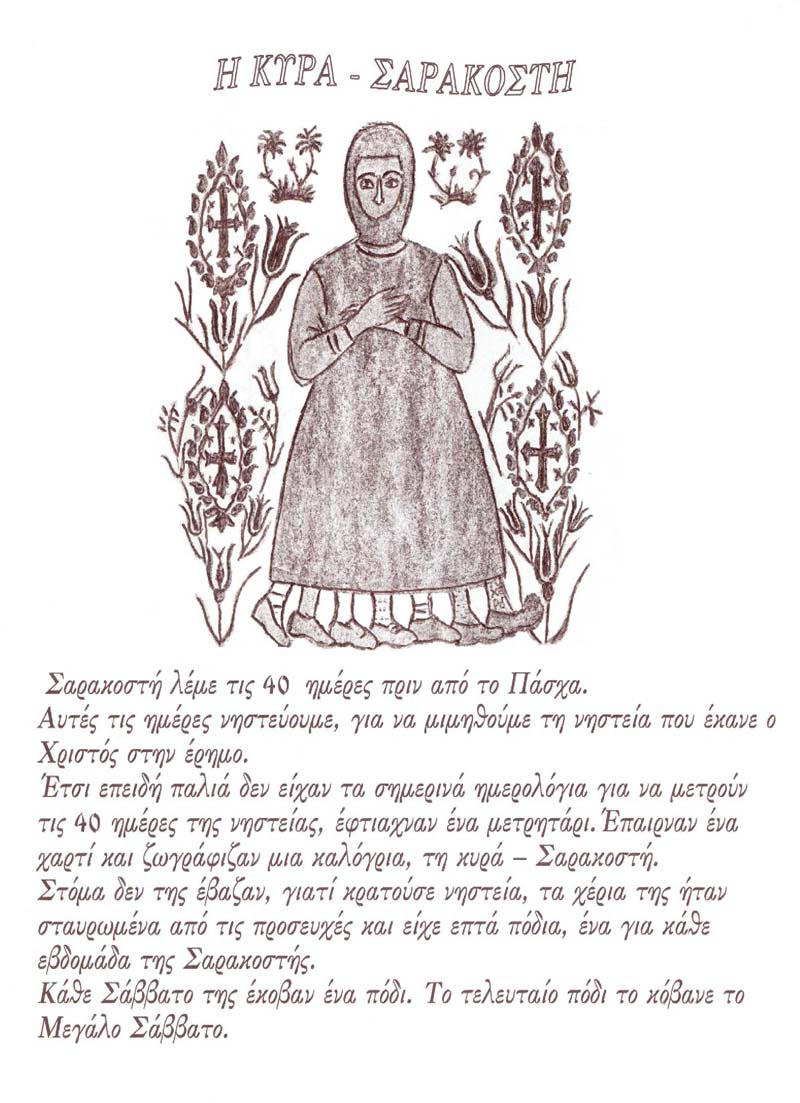 Η ΚΥΡΑ - ΣΑΡΑΚΟΣΤΗ
Σαρακοστή λέμε τις 40 ημέρες πριν από το Πάσχα.
Αυτές τις ημέρες νηστεύουμε, για να μιμηθούμε τη νηστεία που έκανε ο
Χριστός στην έρημο.
Έτσι επειδή παλιά δεν είχαν τα σημερινά ημερολόγια για να μετρούν
τις 40 ημέρες της νηστείας, έφτιαχναν ένα μετρητάρι. Έπαιρναν ένα
χαρτί και ζωγράφιζαν μια καλόγρια, τη κυρά – Σαρακοστή.
Στόμα δεν της έβαζαν, γιατί κρατούσε νηστεία, τα χέρια της ήταν
σταυρωμένα από τις προσευχές και είχε επτά πόδια, ένα για κάθε
εβδομάδα της Σαρακοστής.
Κάθε Σάββατο της έκοβαν ένα πόδι. Το τελευταίο πόδι το κόβανε το
Μεγάλο Σάββατο.